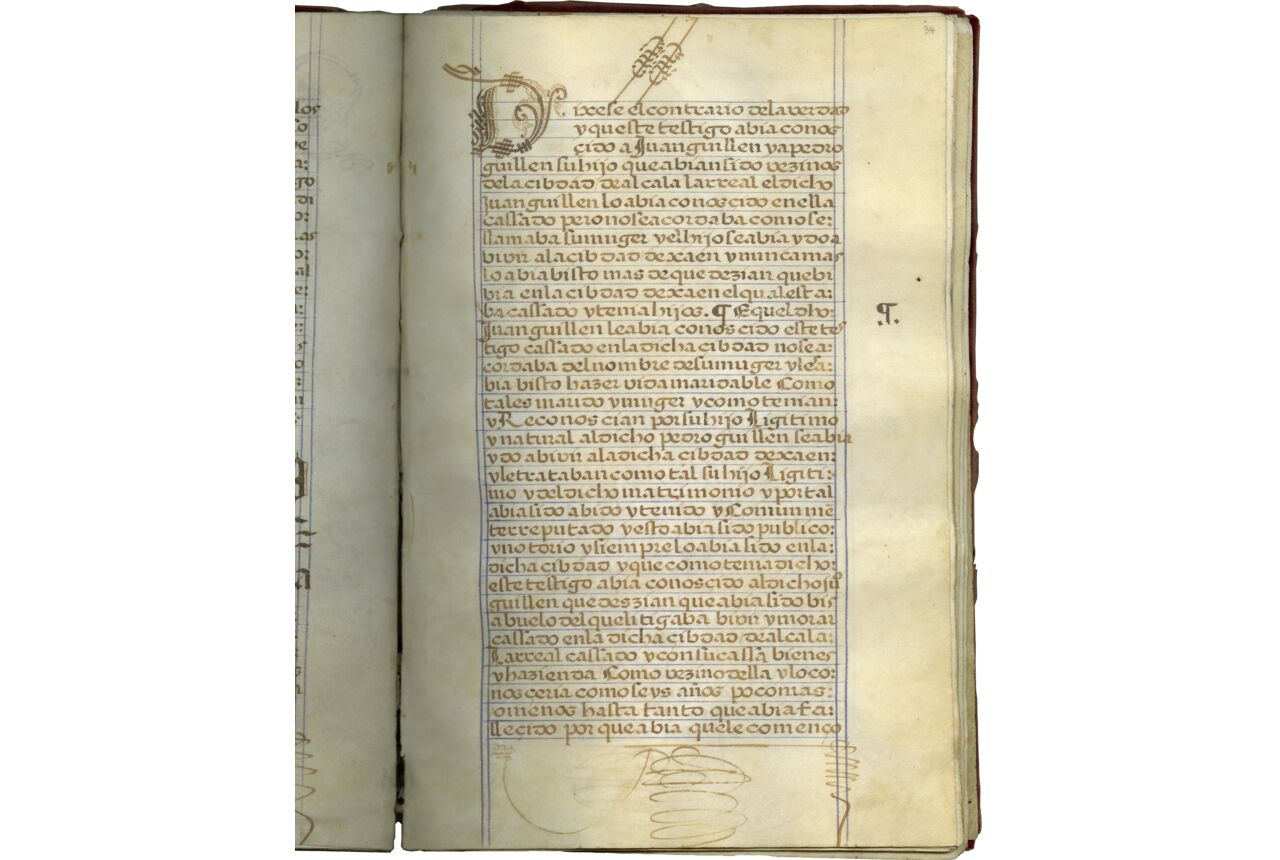 34
Dixese el contrario dela verdad
y que este testigo abia conos
çido a Juan guillen y a pedro
guillen su hijo que abian sido vezinos
dela cibdad de alcala la rreal el dicho
Juan guillen lo abia conoscido en ella
cassado pero no se acordaba como se:
llamaba su muger y el hijo se abia ydo a
bibir ala cibdad de xaen y nunca mas
lo abia bisto mas de que dezian que bi
bia en la cibdad de xaen el qual esta:
ba cassado y tenia hijos. ¶ E que el dho:
Juan guillen le abia conoscido este tes
tigo cassado en la dicha cibdad no se a:
cordaba del nombre de su muger y les a:
bia bisto hazer vida maridable Como
tales marido y muger y como tenian:
y Reconoscian por su hijo Ligitimo
y natural al dicho pedro guillen se abia
ydo a bibir ala dicha cibdad de xaen:
y le trataban como tal su hijo Ligiti:
mo y del dicho matrimonio y por tal
abia sido abido y tenido y Comunmē
te rreputado y esto abia sido publico:
y notorio y siempre lo abia sido en la:
dicha cibdad y que como tenia dicho:
este testigo abia conoscido al dicho juº
guillen que deszian que abia sido bis
abuelo del que litigaba bibir y morar
cassado en la dicha cibdad de alcala:
La rreal cassado y con su cassa bienes
y hazienda Como vezino della y lo co:
nosceria como seys años poco mas:
o menos hasta tanto que abia fa:
llecido por que abia que le començo
¶